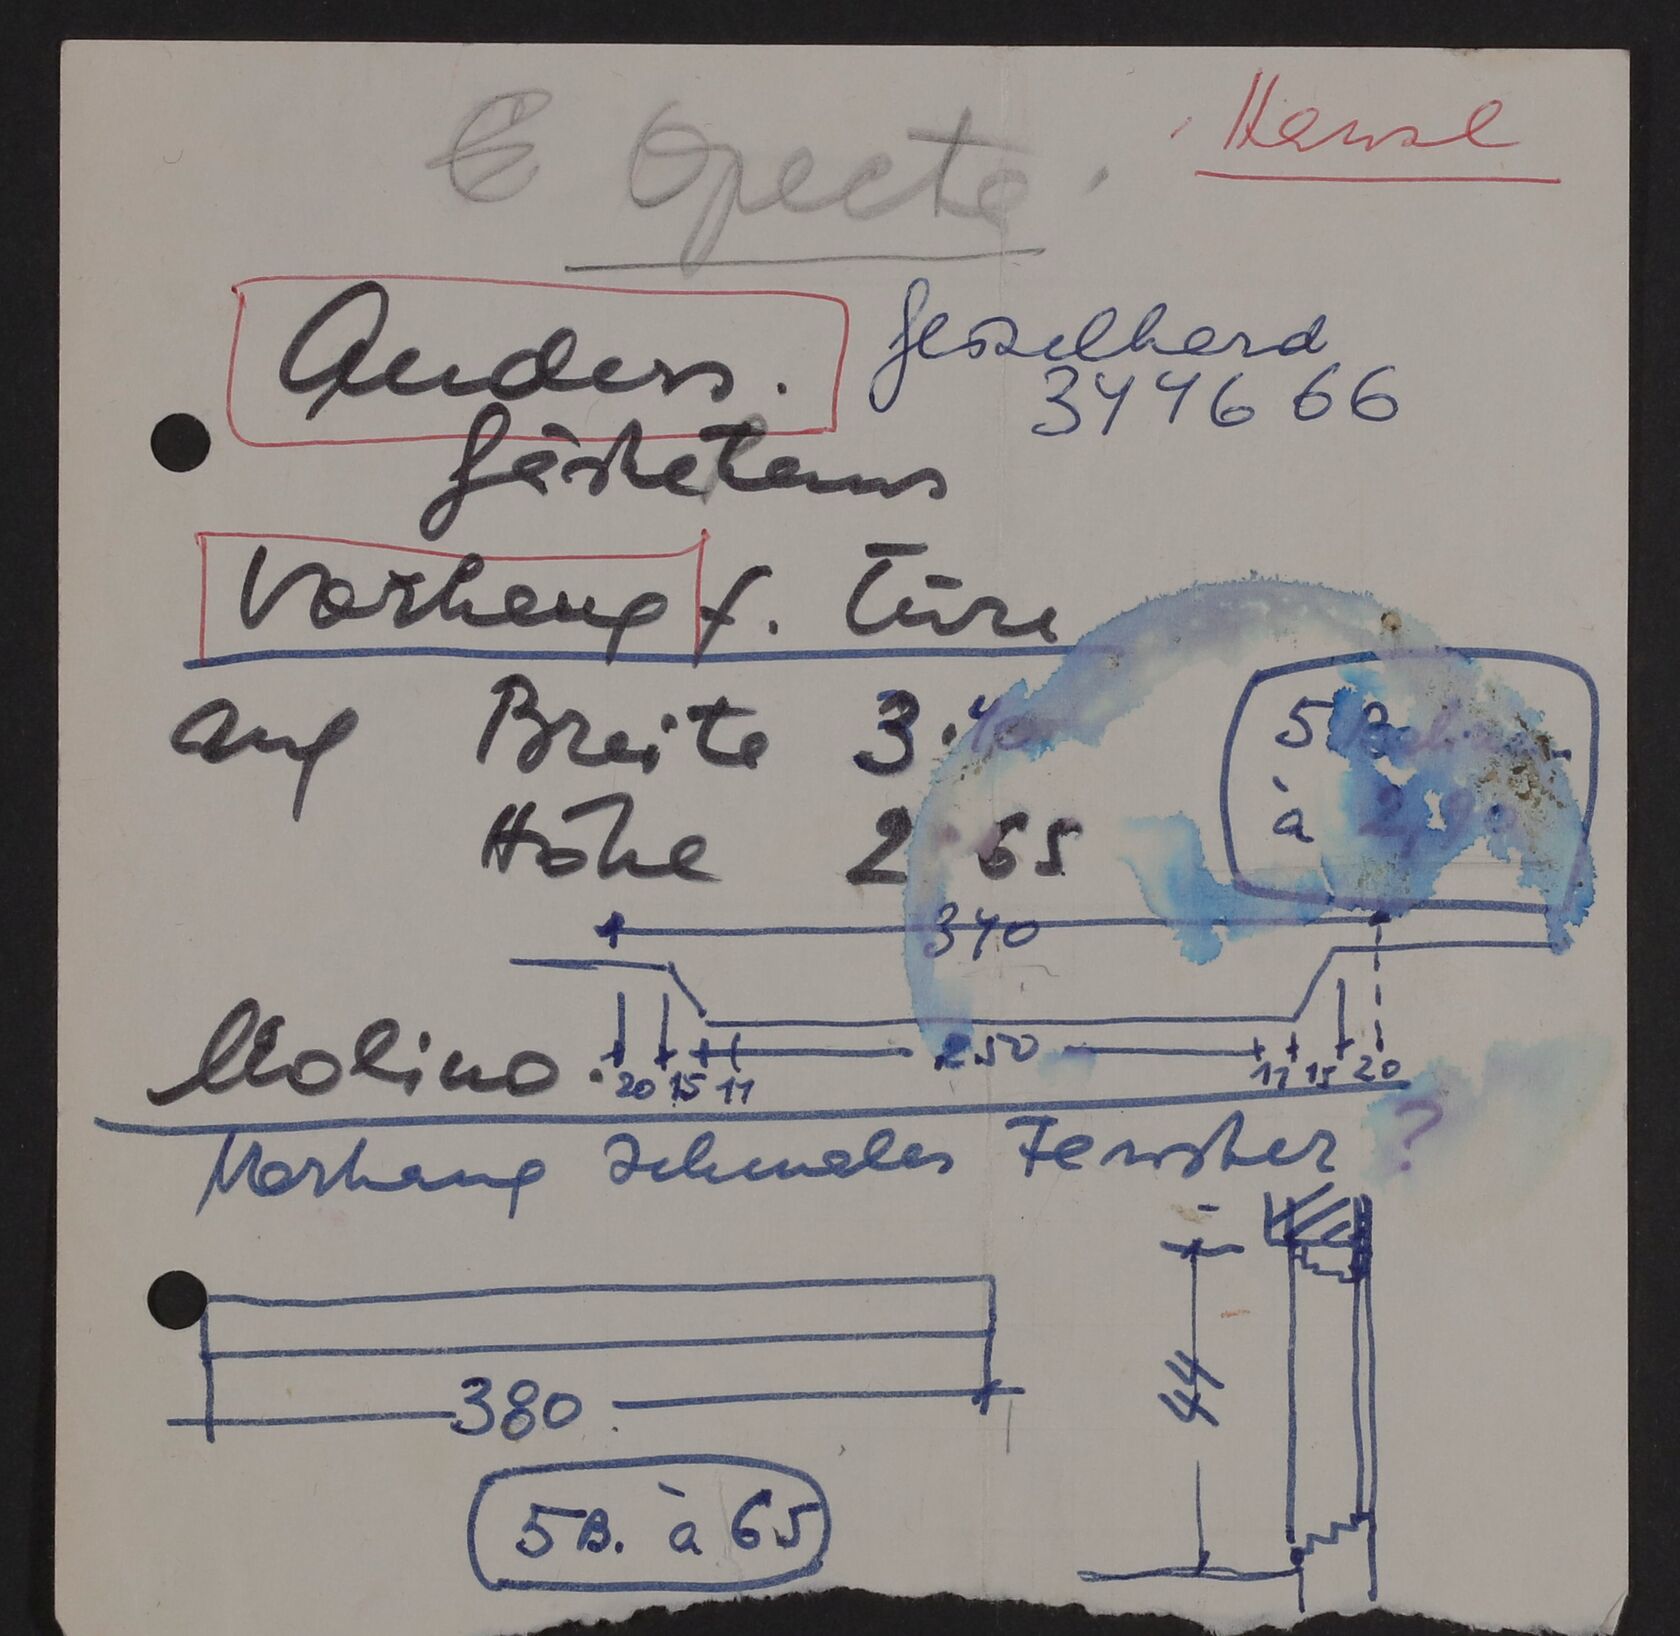 Hansl
Anders.
344 16 66
Gästehaus
Vorhang f. Türe
auf Breite 3.40
Höhe 2.65
5 Bahnen
à 2,90
340
Molino.
20 15 11 250 11 15 20
Vorhang schmales Fenster ?
44
380
5 B. à 65